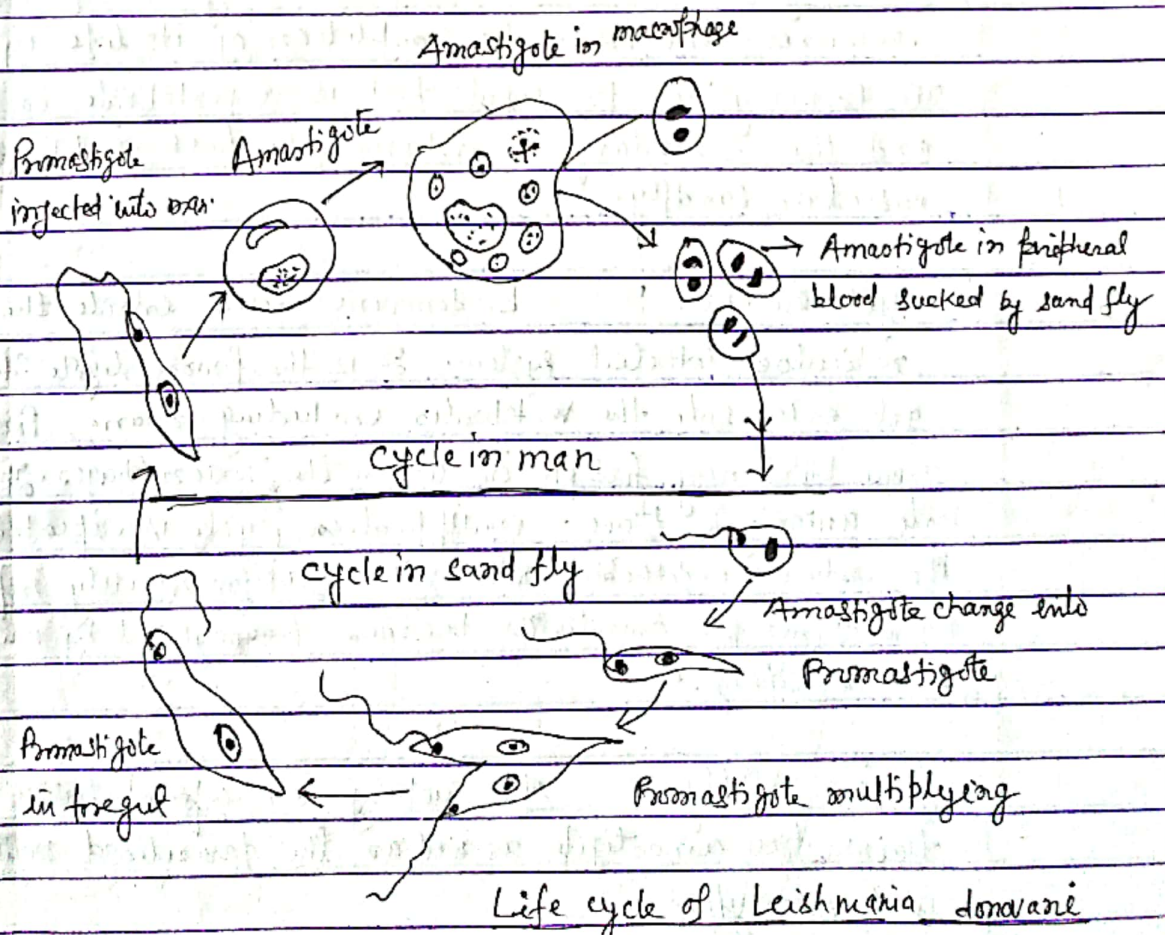 Amastigote in macrophage
Promastigote
injected into man.
Amastigote
→ Amastigote in peripheral
blood sucked by sand fly
cycle in man
cycle in sand fly
Amastigote change into
Promastigote
Promastigote
in foregut
Promastigote multiplying
Life cycle of Leishmania donovani